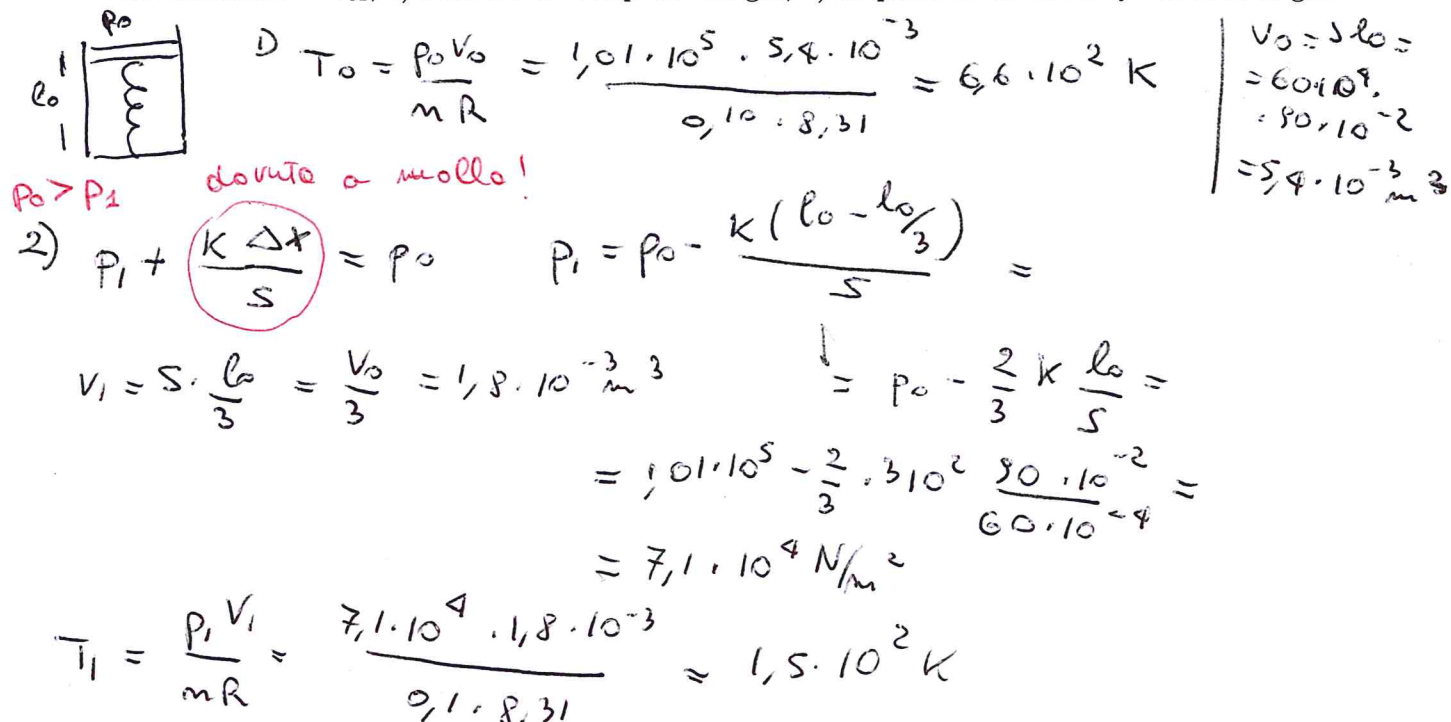 p0
l0
1) T0 = p0 V0 / nR = 1,01·10^5 · 5,4·10^-3 / 0,10 · 8,31 = 6,6·10^2 K
V0 = S l0 =
= 60·10^4 ·
· 90·10^-2
= 5,4·10^-3 m^3
p0 > p1 dovuta a molla!
2) p1 + K Δx / S = p0 p1 = p0 - K (l0 - l0/3) / S =
V1 = S · l0/3 = V0/3 = 1,8·10^-3 m^3 = p0 - 2/3 K l0/S =
= 1,01·10^5 - 2/3 · 3 10^2 90·10^-2 / 60·10^-4 =
= 7,1·10^4 N/m^2
T1 = p1 V1 / nR = 7,1·10^4 · 1,8·10^-3 / 0,1 · 8,31 = 1,5·10^2 K